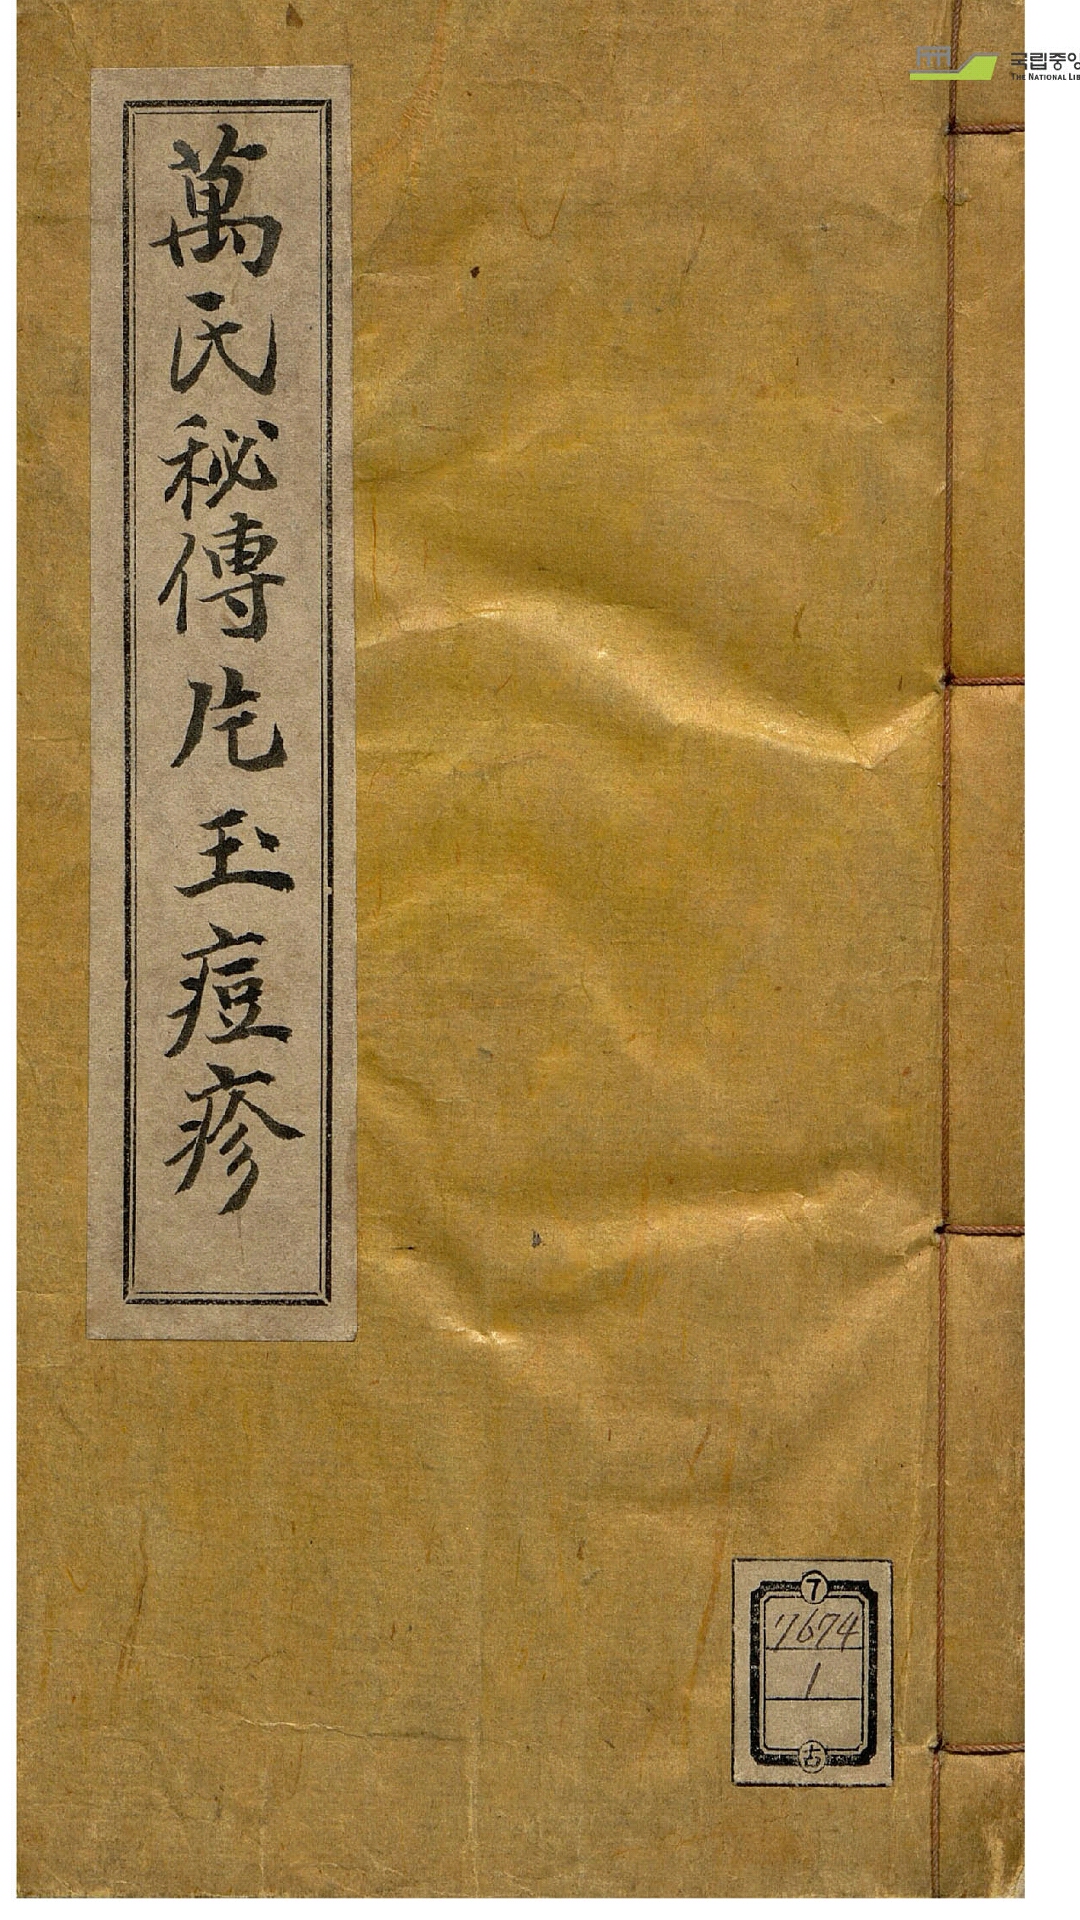 萬氏秘傳片玉痘疹
국립중앙
THE NATIONAL LIB
7
7674
1
古